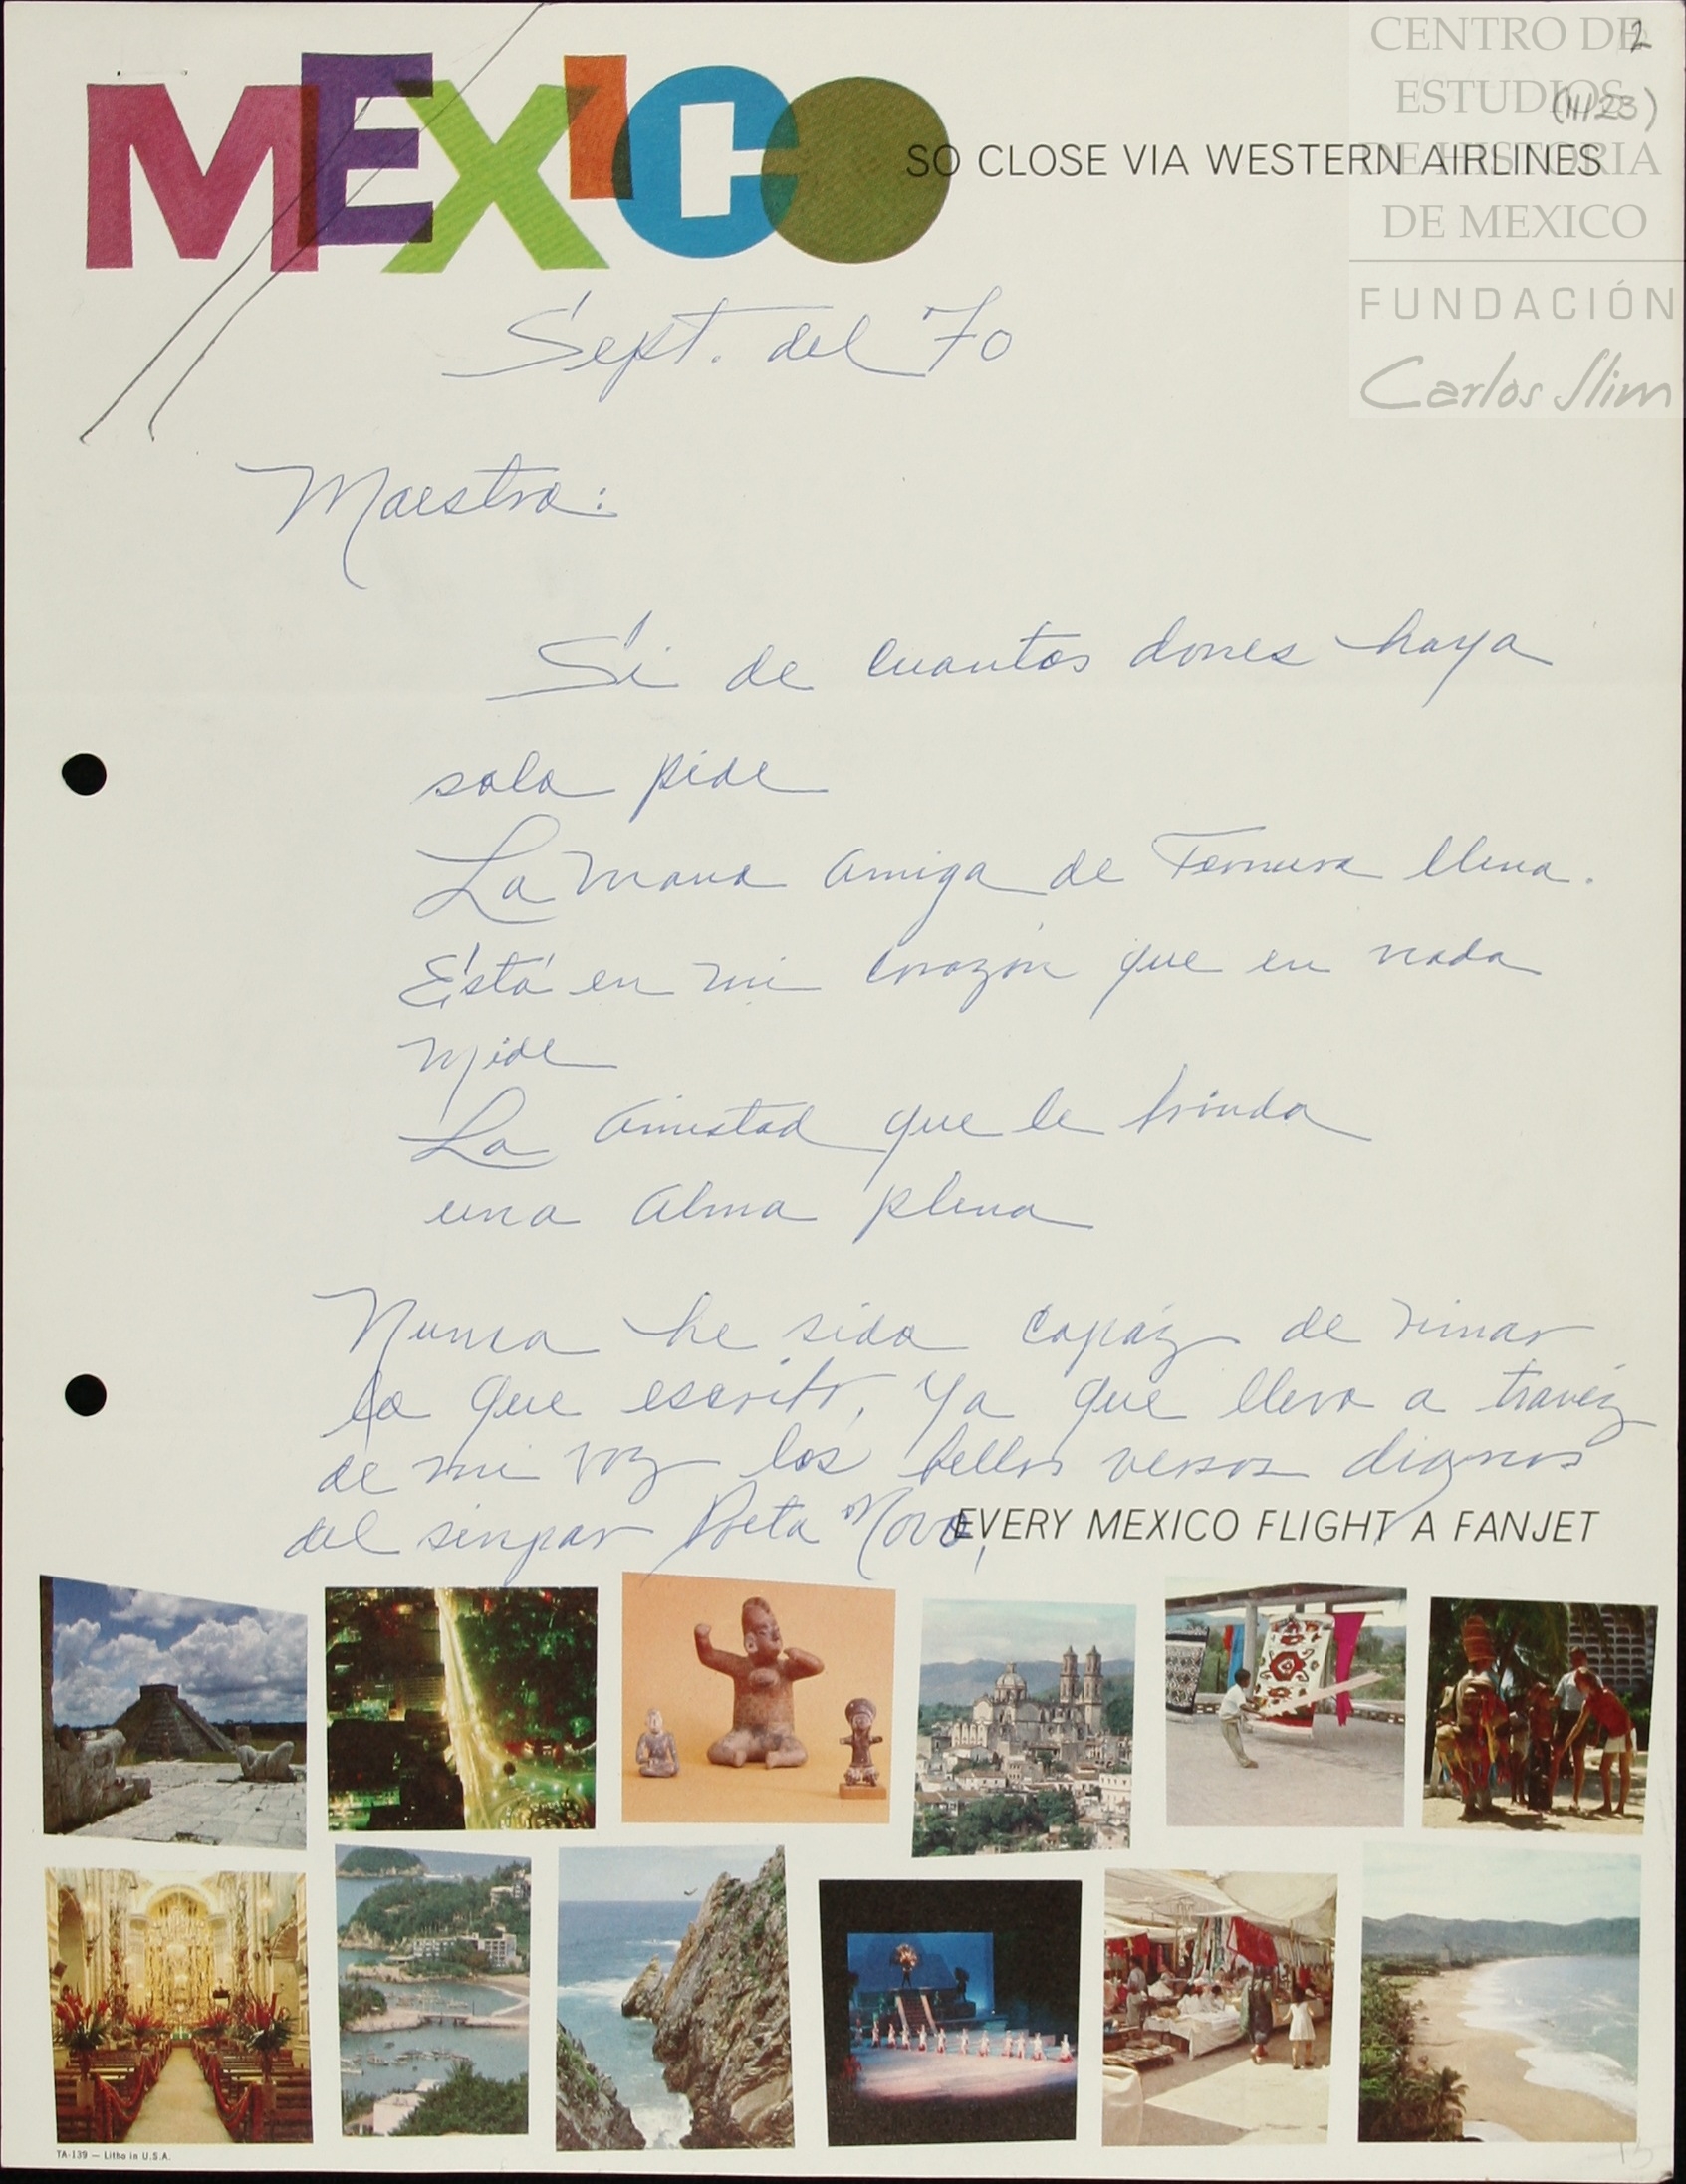 CENTRO DE
ESTUDIOS
DE HISTORIA
DE MEXICO
FUNDACIÓN
Carlos Slim
2
(11/23)
MEXICO
SO CLOSE VIA WESTERN AIRLINES
Sept. del 70
Maestro:
Si de cuantos dones haya
solo pide
La mano amiga de Ternura llena.
Está en mi corazón que en nada
mide
La amistad que le brinda
una alma plena
Nunca he sido capáz de rimar
lo que escribo, Ya que llevo a travéz
de mi voz los bellos versos dignos
del sinpar Poeta Novo,
EVERY MEXICO FLIGHT A FANJET
TA-139 — Litho in U.S.A.